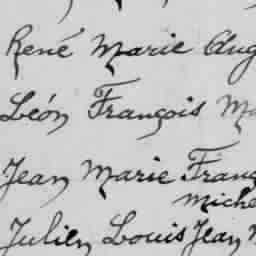 René Marie Aug
Léon François Ma
Jean Marie Franç
Miche
Julien Louis Jean M